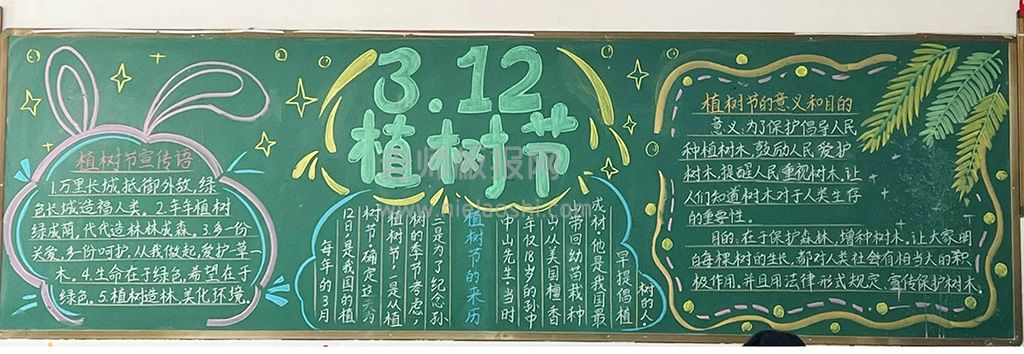 植树节宣传语
1.万里长城抵御外敌,绿
色长城造福人类。2.年年植树
绿成网,代代造林林成森。3.多一份
关爱,多一份呵护,从我做起,爱护草一
木。4.生命在于绿色,希望在于
绿色。5.植树造林,美化环境。
3.12
植树节
植树节的来历
每年的3月
12日是我国的植
树节。确定这天为
植树节,一是从植
树的季节考虑,
二是为了纪念孙
中山先生。当时
年仅18岁的孙中
山,从美国檀香
带回幼苗栽种
成材。他是我国最
早提倡植
树的人。
植树节的意义和目的
意义:为了保护倡导人民
种植树木,鼓励人民爱护
树木,提醒人民重视树木,让
人们知道树木对于人类生存
的重要性。
目的:在于保护森林,增种树木。让大家明
白每棵树的生长,都对人类社会有相当大的积
极作用。并且用法律形式规定,宣传保护树木。